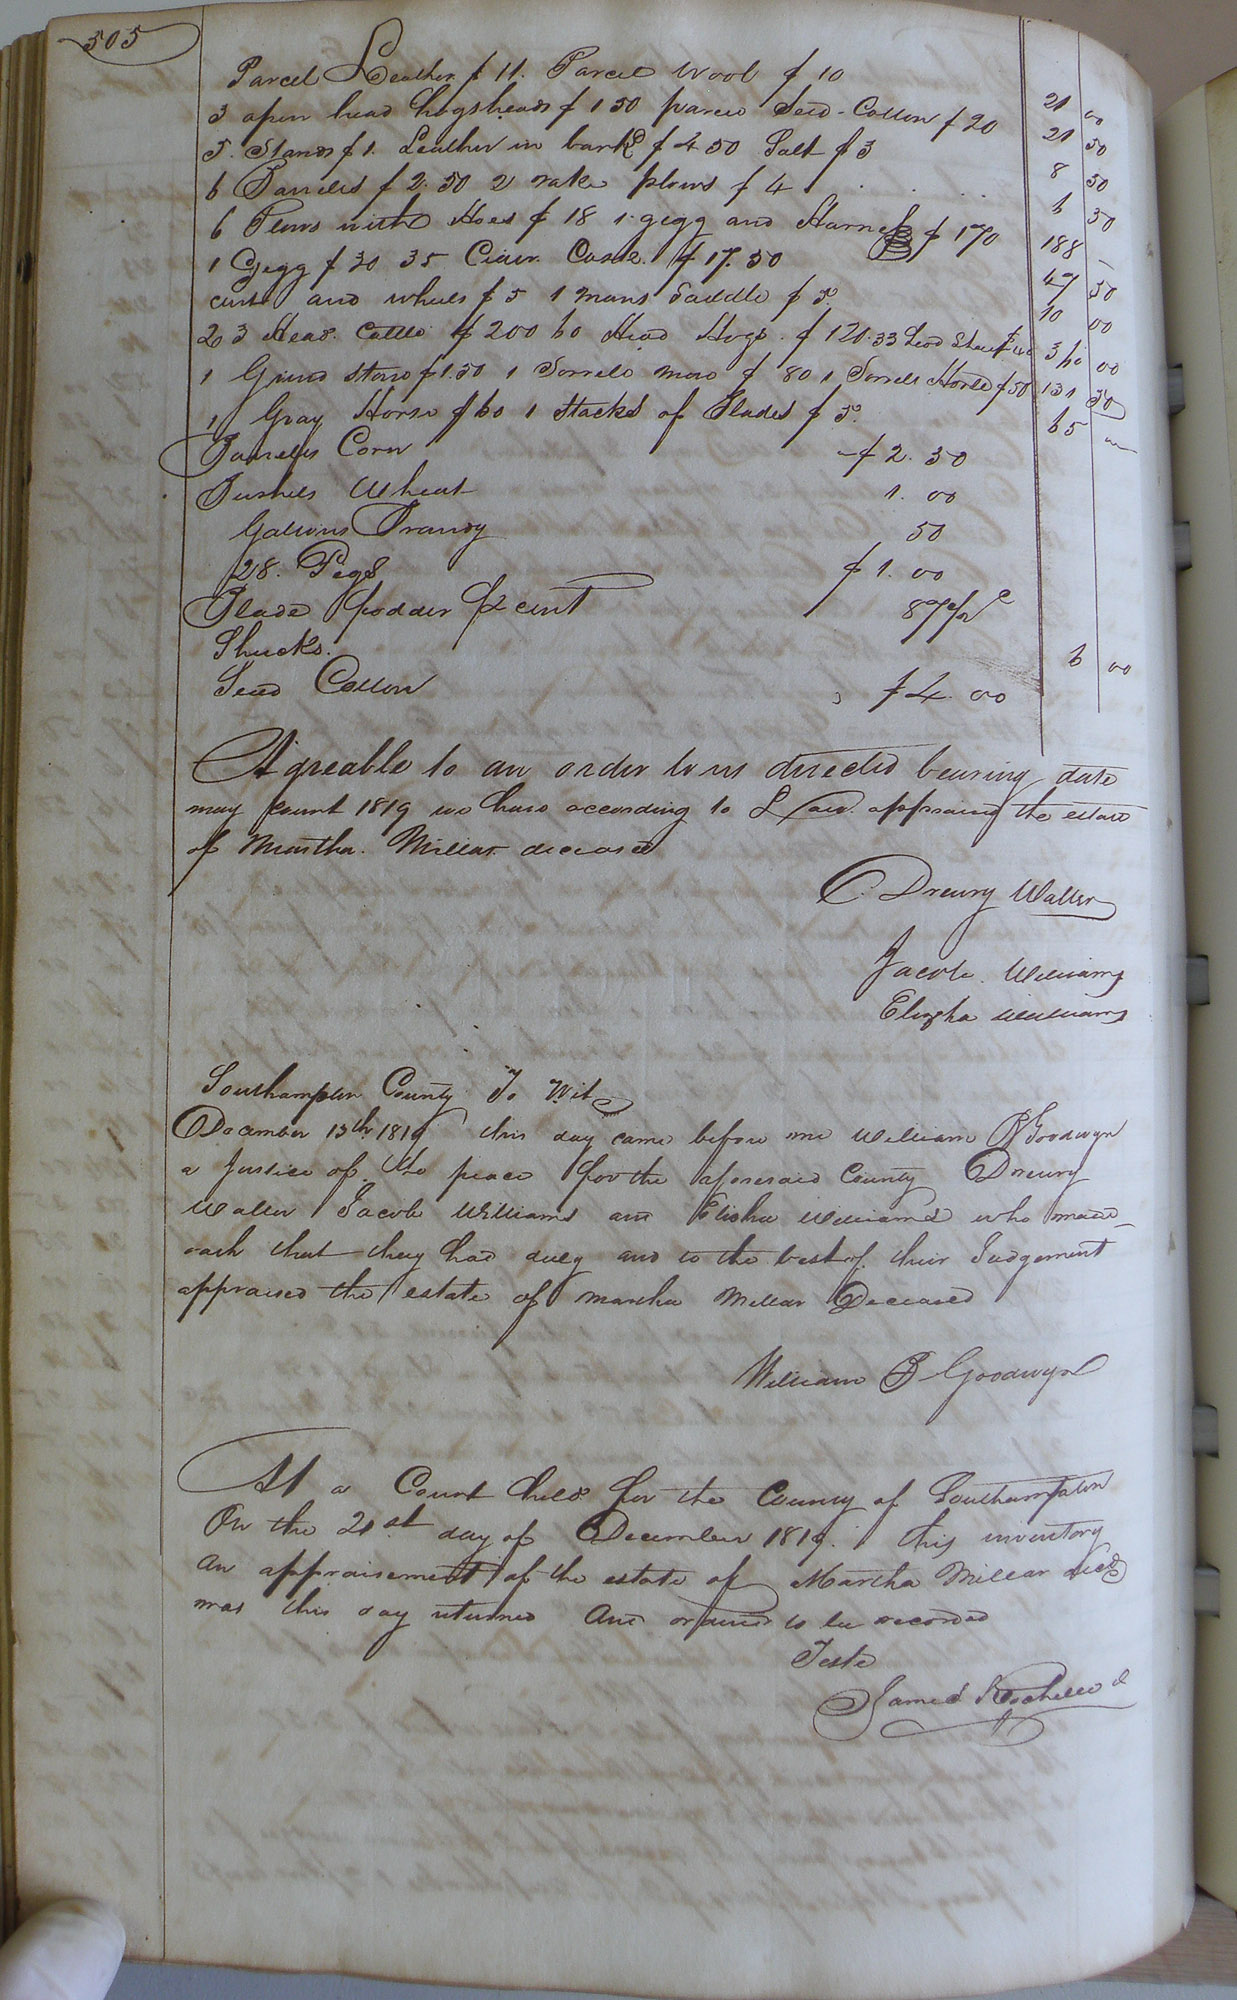 505
Parcel Leather $ 11. Parcel Wool $ 10 21 00
3 open head hogsheads $ 1 50 parcel Seed Cotton $ 20 21 50
5 Stands $ 1. Leather in bark $ 4 50 Salt $ 3 8 50
6 Barrels $ 2.50 2 rake plows $ 4 6 50
6 Plows with Hoes $ 18 1 gigg and Harness $ 170 188 -
1 Gigg $ 30 35 Cider Cask $ 17.50 47 50
cart and wheels $ 5 1 mans Saddle $ 5. 10 00
23 Head Cattle $ 200 60 Head Hogs $ 120. 33 Head Sheep $ 360 00
1 Grind stone $ 1.50 1 Sorrele mare $ 80 1 Sorrele Horse $ 50 131 50
1 Gray Horse $ 60 1 Stacks of Blades $ 5. 65 00
Barrells Corn $ 2. 50
Bushels Wheat 1. 00
Gallons Brandy 50
28. Pigs $ 1. 00
Blade fodder pr cent 87 1/2 c
Shucks. 6 00
Seed Cotton $ 4. 00
Agreable to an order to us directed bearing date
may Court 1819 we have according to Law appraised the estate
of Martha Millar deceased
Drewry Waller
Jacob Williams
Elisha Williams
Southampton County To Wit
December 13th 1819 this day came before me William B Goodwyn
a Justice of the peace for the aforesaid County Drewry
Waller Jacob Williams and Elisha Williams who made
oath that they had duly and to the best of their Judgement
appraised the estate of martha Millar Deceased
William B Goodwyn
At a Court held for the County of Southampton
On the 21st day of December 1819. this inventory
an appraisement of the estate of Martha Millar decd
was this day returned And ordered to be recorded
Teste
James Rochelle